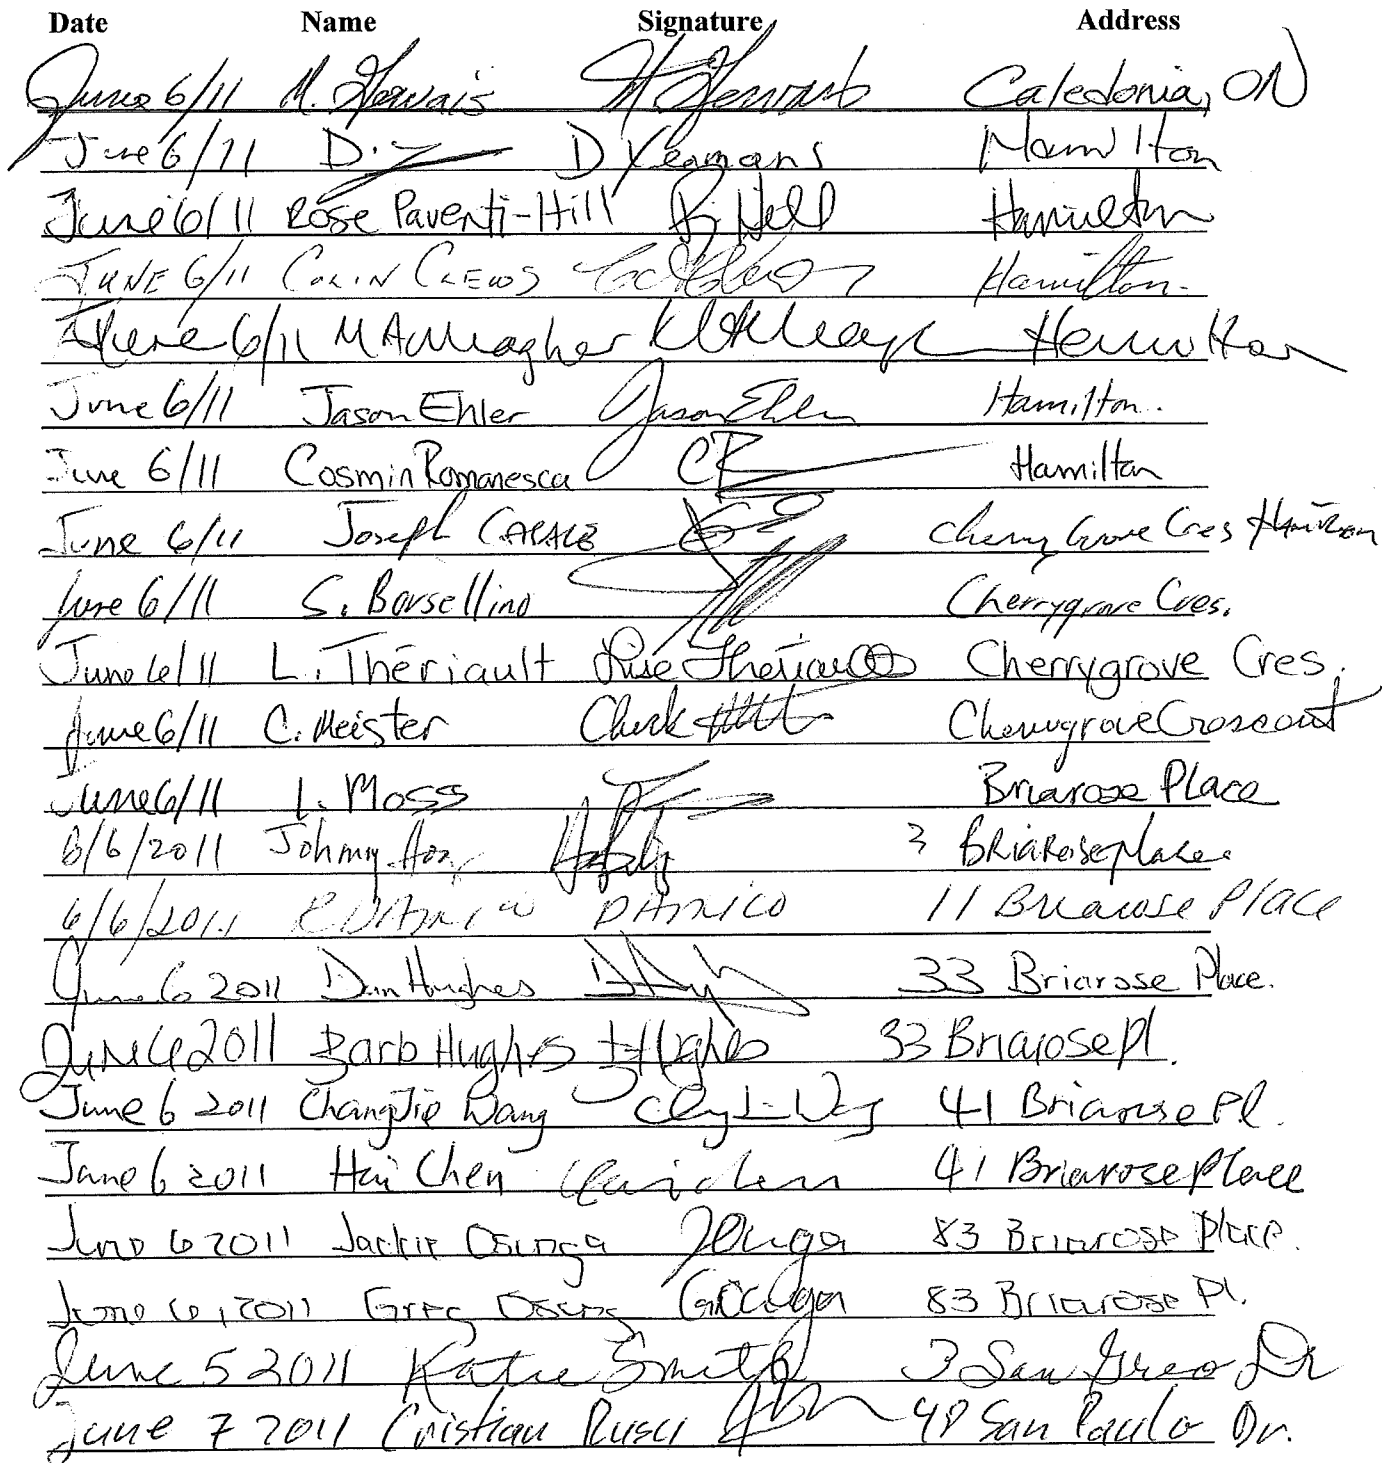 Date Name Signature Address
June 6/11 M. Gervais M Gervais Caledonia, ON
June 6/11 D. D Yeamans Hamilton
June 6/11 Rose Paventi-Hill R Hill Hamilton
JUNE 6/11 COLIN CLEWS Hamilton.
June 6/11 Hamilton
June 6/11 Jason Ehler Jason Ehler Hamilton.
June 6/11 Cosmin Romanesca CR Hamilton
June 6/11 Joseph Cherry Grove Cres Hamilton
June 6/11 S. Borsellino Cherrygrove Cres.
June 6/11 L. Thériault Lise Thériault Cherrygrove Cres.
June 6/11 C. Meister Cherrygrove Crescent
June 6/11 L. Moss Briarose Place
6/6/2011 Johnny Briarose place
6/6/2011 R DAMICO DAMICO 11 Briarose Place
June 6 2011 Dan Hughes 33 Briarose Place.
June 6 2011 Barb Hughes B Hughes 33 Briarose Pl.
June 6 2011 ChangJie Wang 41 Briarose Pl.
June 6 2011 Hai Chen Hai chen 41 Briarose Place
June 6 2011 Jackie Osinga JOsinga 83 Briarose Place.
June 6, 2011 Greg Osinga G Osinga 83 Briarose Pl.
June 5 2011 Katie Smith 3 San Dr
June 7 2011 Cristian Rusu San Paulo Dr.